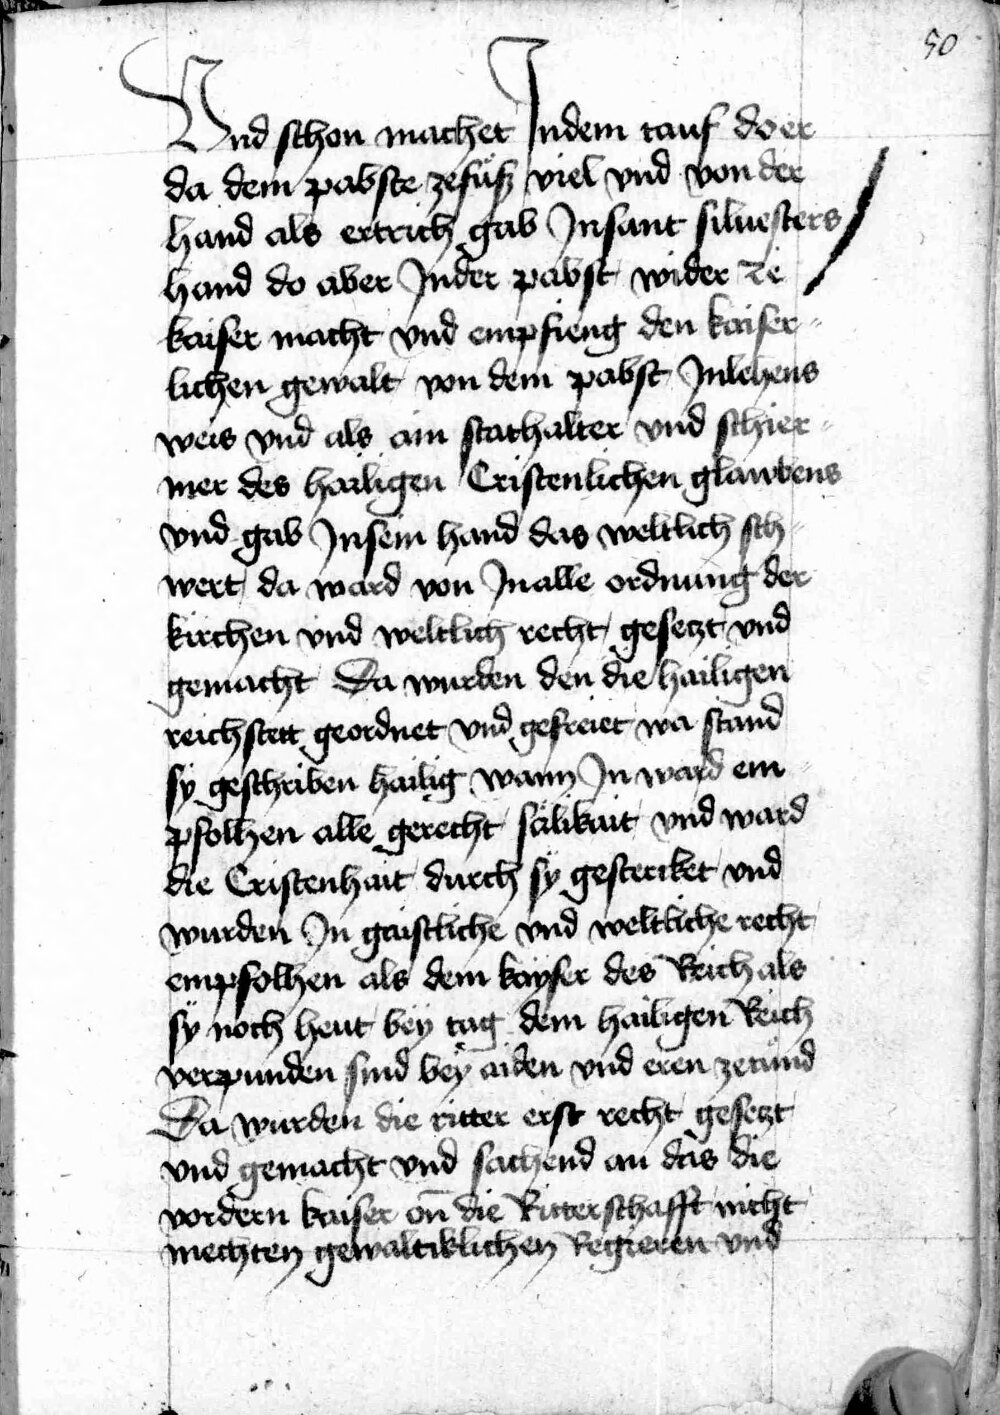 50
Vnd schon machet Indem tauf do er
da dem pabste zefüsz viel vnd von der
hand als ertrich gab Insant siluesters
hand do aber Inder pabst wider ze
kaiser macht vnd empfieng den kaiser-
lichen gewalt von dem pabst Inlehens
weis vnd als ain stathalter vnd schier-
mer des hailigen Cristenlichen glawbens
vnd gab Insein hand das weltlich sch-
wert da ward von In alle ordnung der
kirchen vnd weltlich recht gesetzt vnd
gemacht Da wurden den die hailigen
reichstett geordnet vnd gefreiet wa stand
sy geschriben hailig wann In ward em-
pfolhen alle gerecht sälikait vnd ward
die Cristenhait durch sÿ gesteriket vnd
wurden In gaistliche vnd weltliche recht
empfolhen als dem kaÿser des Reich als
sÿ noch heut beÿ tag dem hailigen Reich
verpunden sind beÿ aiden vnd eren zetůnd
Da wurden die ritter erst recht gesetzt
vnd gemacht vnd sachend an das die
vordern kaiser on̄ die Ritterschafft nicht
mechten gewaltiklichen Regieren vnd